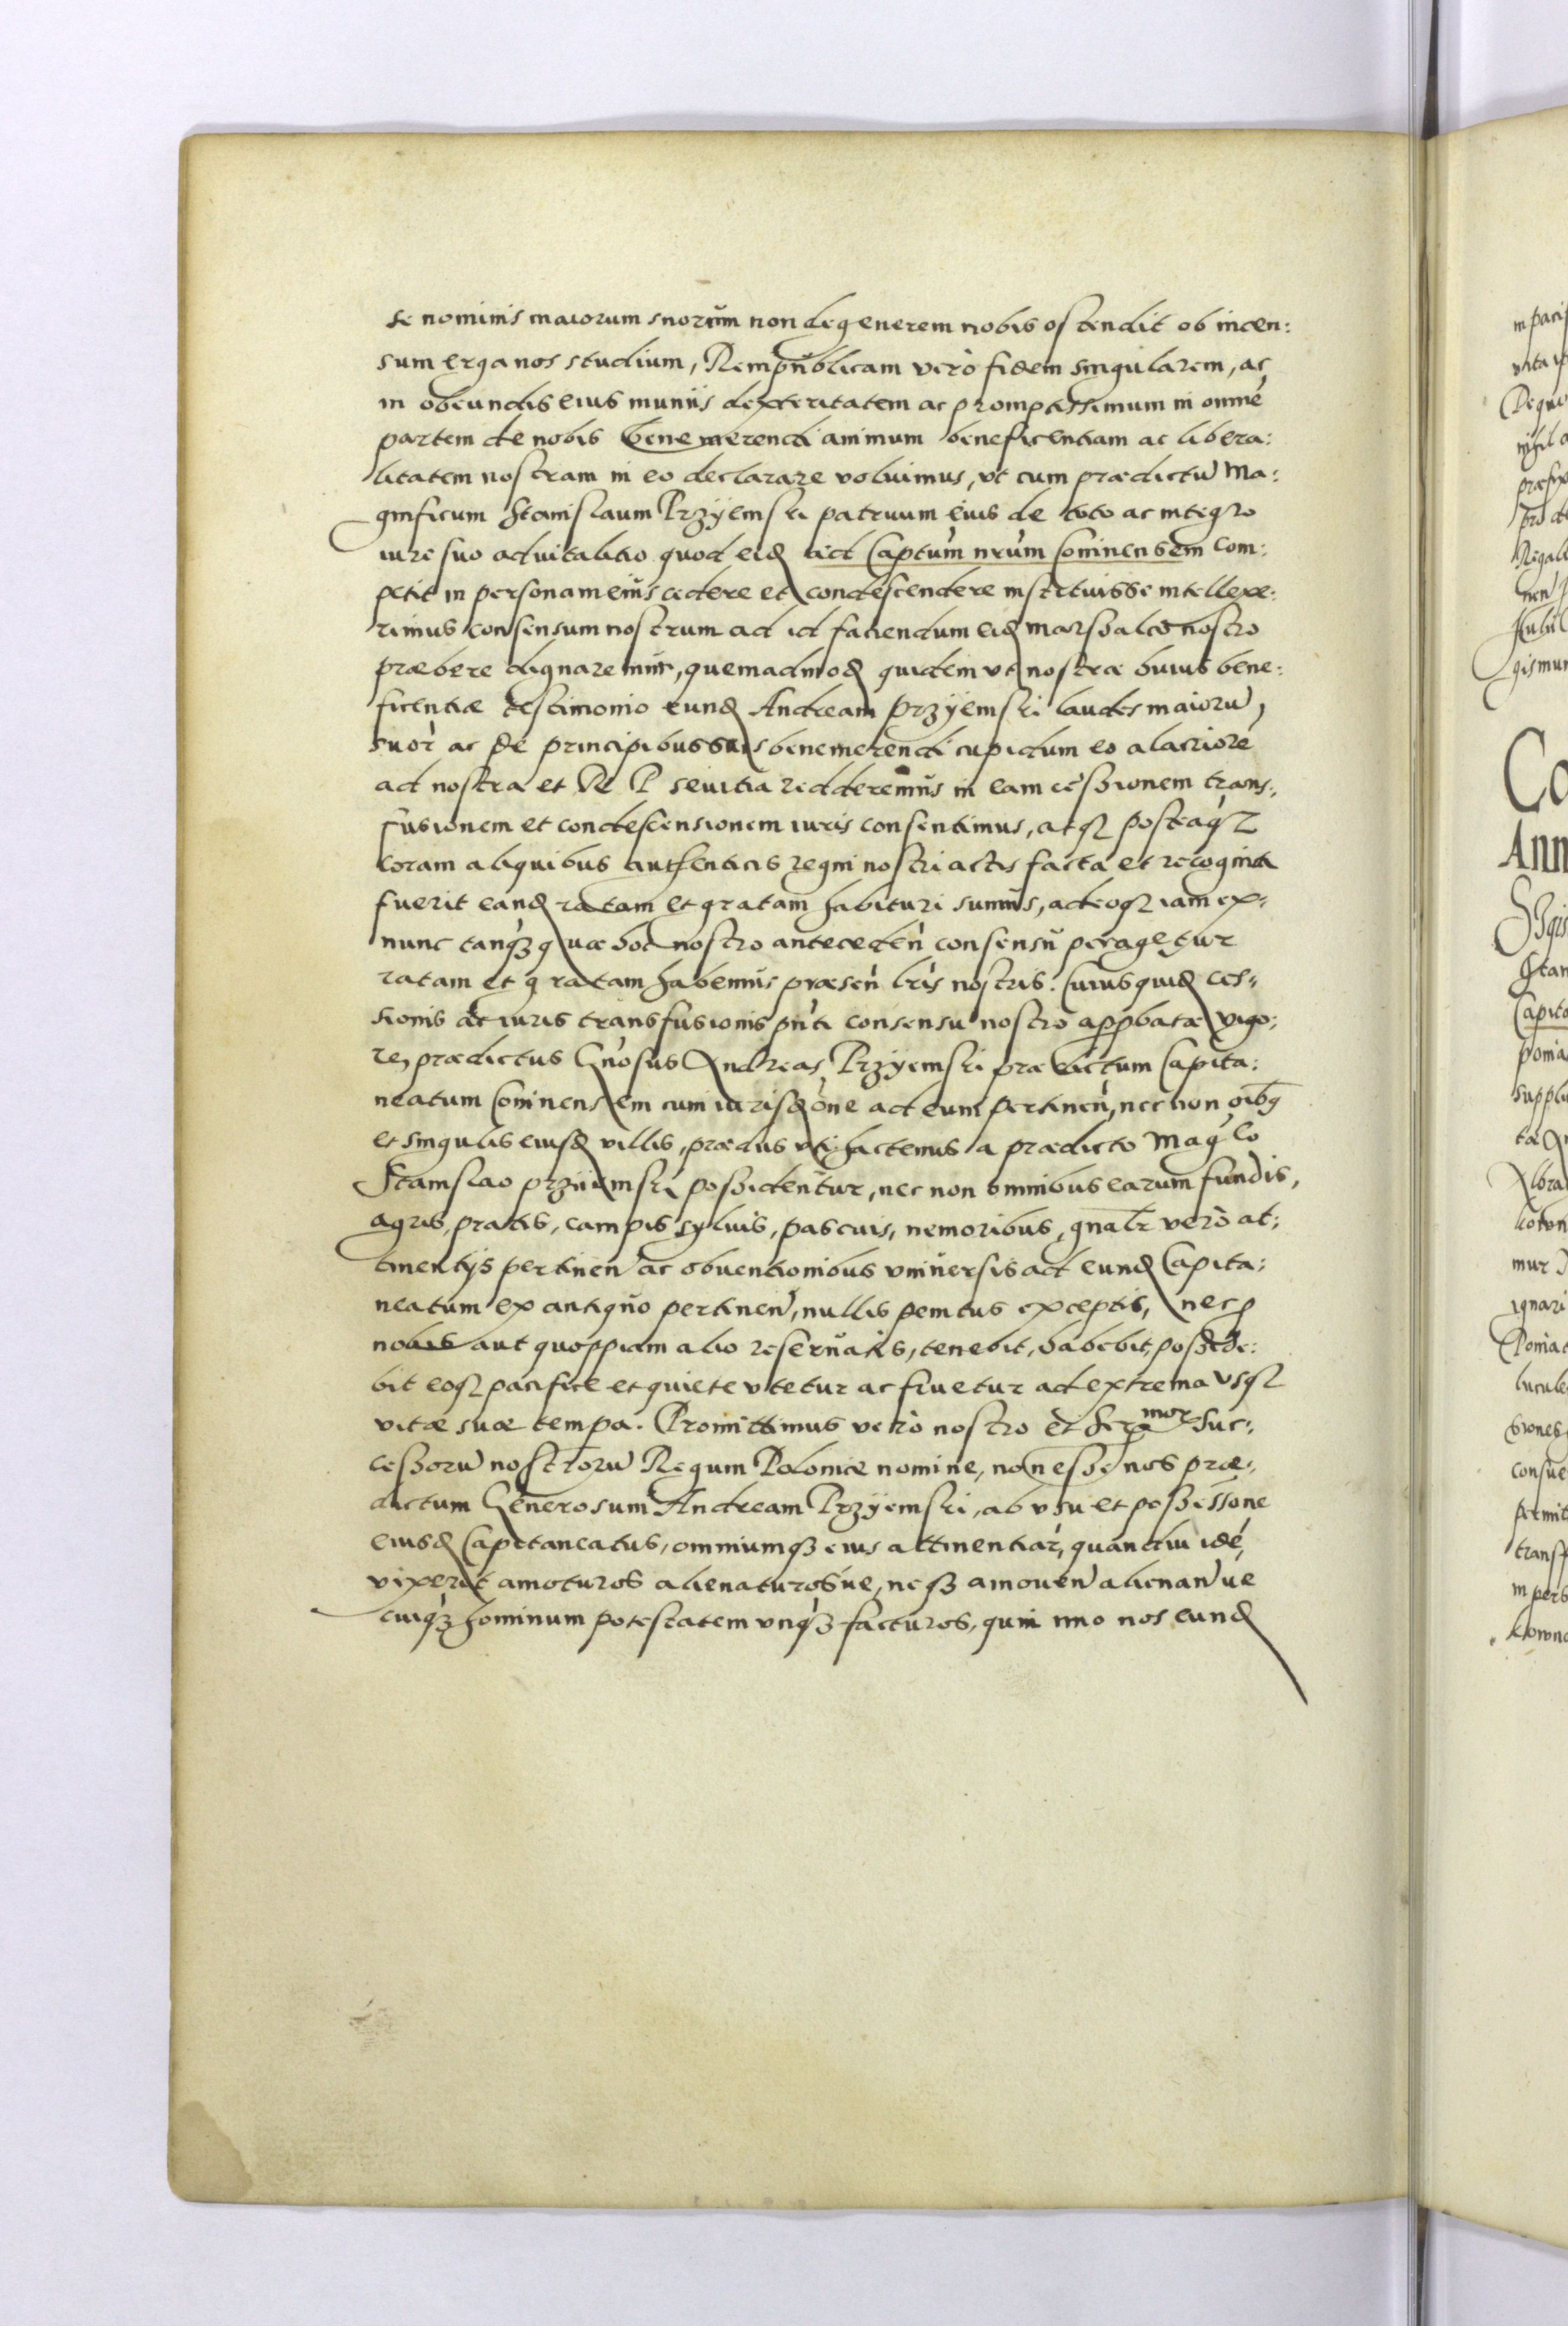 se nominis maiorum suorum non degenerem nobis ostendit ob incen:
sum erga nos studium, Rempublicam verò fidem singularem, ac
in obeundis eius muniis dexteritatem ac promptissimum in omné
partem de nobis bene merendi animum beneficentiam ac libera:
litatem nostram in eo declarare voluimus, vt cum prædictũ Ma:
gnificum Stanislaum Przÿemski patruum eius de toto ac integro
iure suo aduitalitio quod eid ad Captum nrum Coninensem com:
petit in personam eius cedere et condescendere instituisse intellexe:
rimus consensum nostrum ad id faciendum eid Marschalco nostro
præbere dignaremur, quemadmod quidem vt nostræ huius bene:
ficentiæ testimonio eund Andream Przÿemski laudes maiorũ,
suor ac de principibus suis benemerendi cupidum eo alacrioré
ad nostra et R P seuitia redderemus in eam cessionem trans:
fusionem et condescensionem iuris consentimus, atq posteaq
coram aliquibus authenticis regni nostri actis facta et recognita
fuerit eand ratam et gratam habituri sumus, adeoq iam ex:
nunc tanq quæ hoc nostro anteceden consensu peragetur
ratam et gratam habemus præsen lris nostris. Cuius quid ces:
sionis ac iuris transfusionis pnti consensu nostro appbatæ vigo:
re, prædictus Gnosus Andreas Przÿemski prædictum Capita:
neatum Coninensem cum iurisdone ad eum pertinen, nec non oibg
et singulis eiusd villis, prædiis vti hactenus a prædicto Magco
Stanislao Przÿiemski possidentur, nec non omnibus earum fundis,
agris, pratis, campis syluis, pascuis, nemoribus, gnalr verò at:
tinentijs pertinen ac obuentionibus vniuersis ad eund Capita:
neatum ex antiquo pertinen, nullis penitus exceptis, neq
nobis aut quoppiam alio reseruatis, tenebit, habebit, posside:
bit eoq pacifice et quiete vtetur ac fruetur ad extrema vsq
vitæ suæ tempa. Promittimus verò nostro et Serãmor Suc:
cessorũ nostrorũ Regum Poloniæ nomine, non esse nos præ:
dictum Generosum Andream Przÿemski, ab vsu et possessione
eiusd Capitaneatus, omniumq eius attinentiar, quamdiu idé,
vixerit amoturos alienaturosue, neq amouen alienan ue
cuiq hominum potestatem vnq facturos, quin imo nos eund